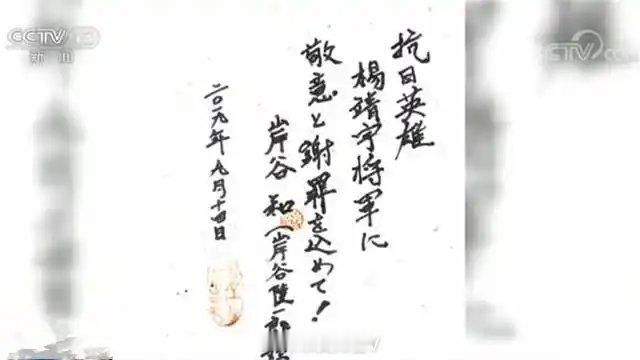 抗日英雄
楊靖宇将軍に
敬意と謝罪を込めて!
岸谷 和(岸谷隆一郎
二〇一九年九月十四日
CCTV 13
新闻
CCTV